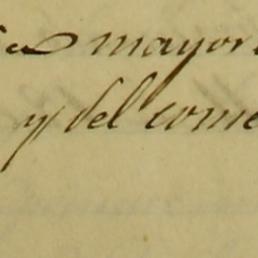 mayor
y del come